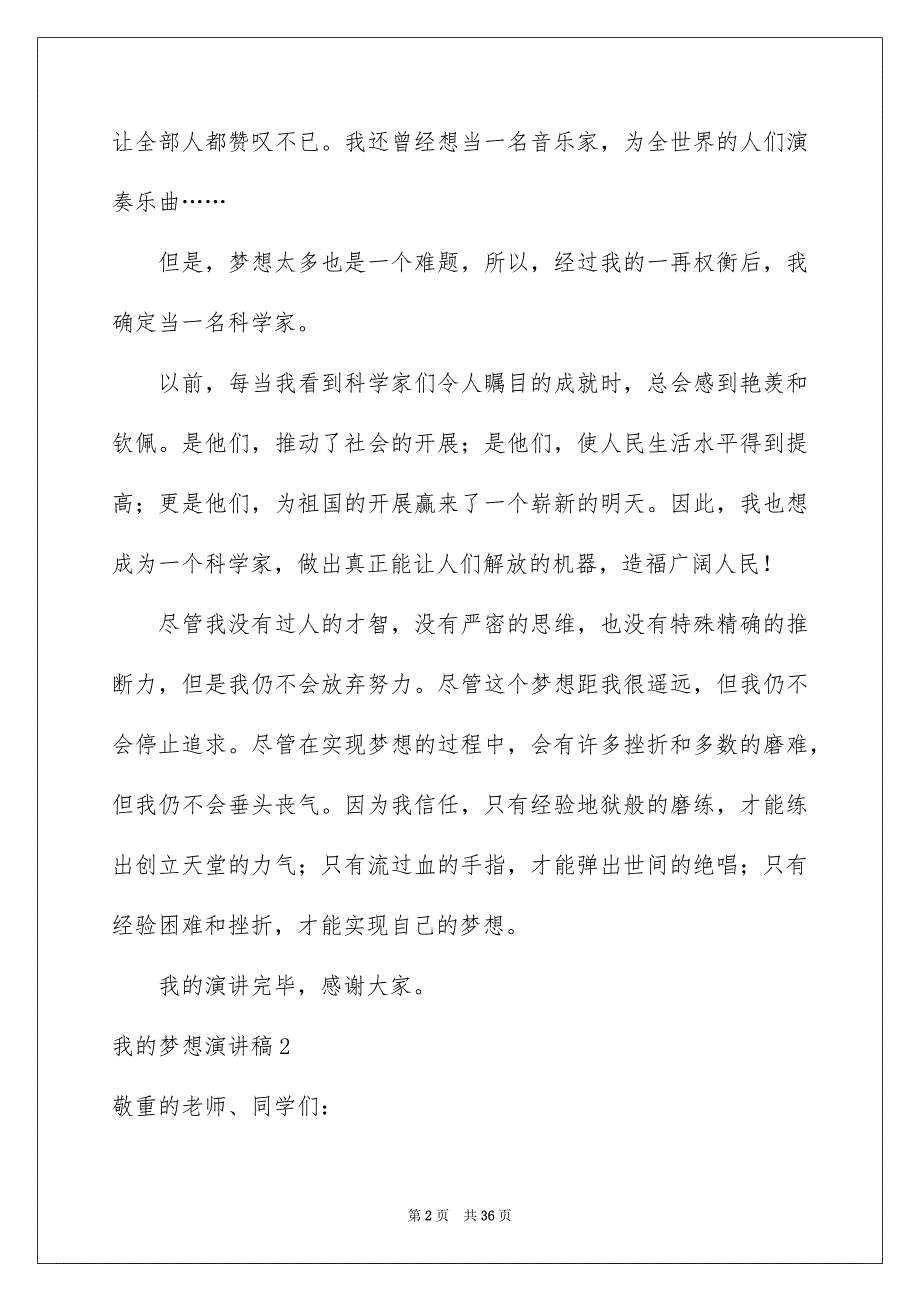 让全部人都赞叹不已。我还曾经想当一名音乐家，为全世界的人们演
奏乐曲……
但是，梦想太多也是一个难题，所以，经过我的一再权衡后，我
确定当一名科学家。
以前，每当我看到科学家们令人瞩目的成就时，总会感到艳羡和
钦佩。是他们，推动了社会的开展；是他们，使人民生活水平得到提
高；更是他们，为祖国的开展赢来了一个崭新的明天。因此，我也想
成为一个科学家，做出真正能让人们解放的机器，造福广阔人民！
尽管我没有过人的才智，没有严密的思维，也没有特殊精确的推
断力，但是我仍不会放弃努力。尽管这个梦想距我很遥远，但我仍不
会停止追求。尽管在实现梦想的过程中，会有许多挫折和多数的磨难，
但我仍不会垂头丧气。因为我信任，只有经验地狱般的磨练，才能练
出创立天堂的力气；只有流过血的手指，才能弹出世间的绝唱；只有
经验困难和挫折，才能实现自己的梦想。
我的演讲完毕，感谢大家。
我的梦想演讲稿2
敬重的老师、同学们：
第2页 共36页